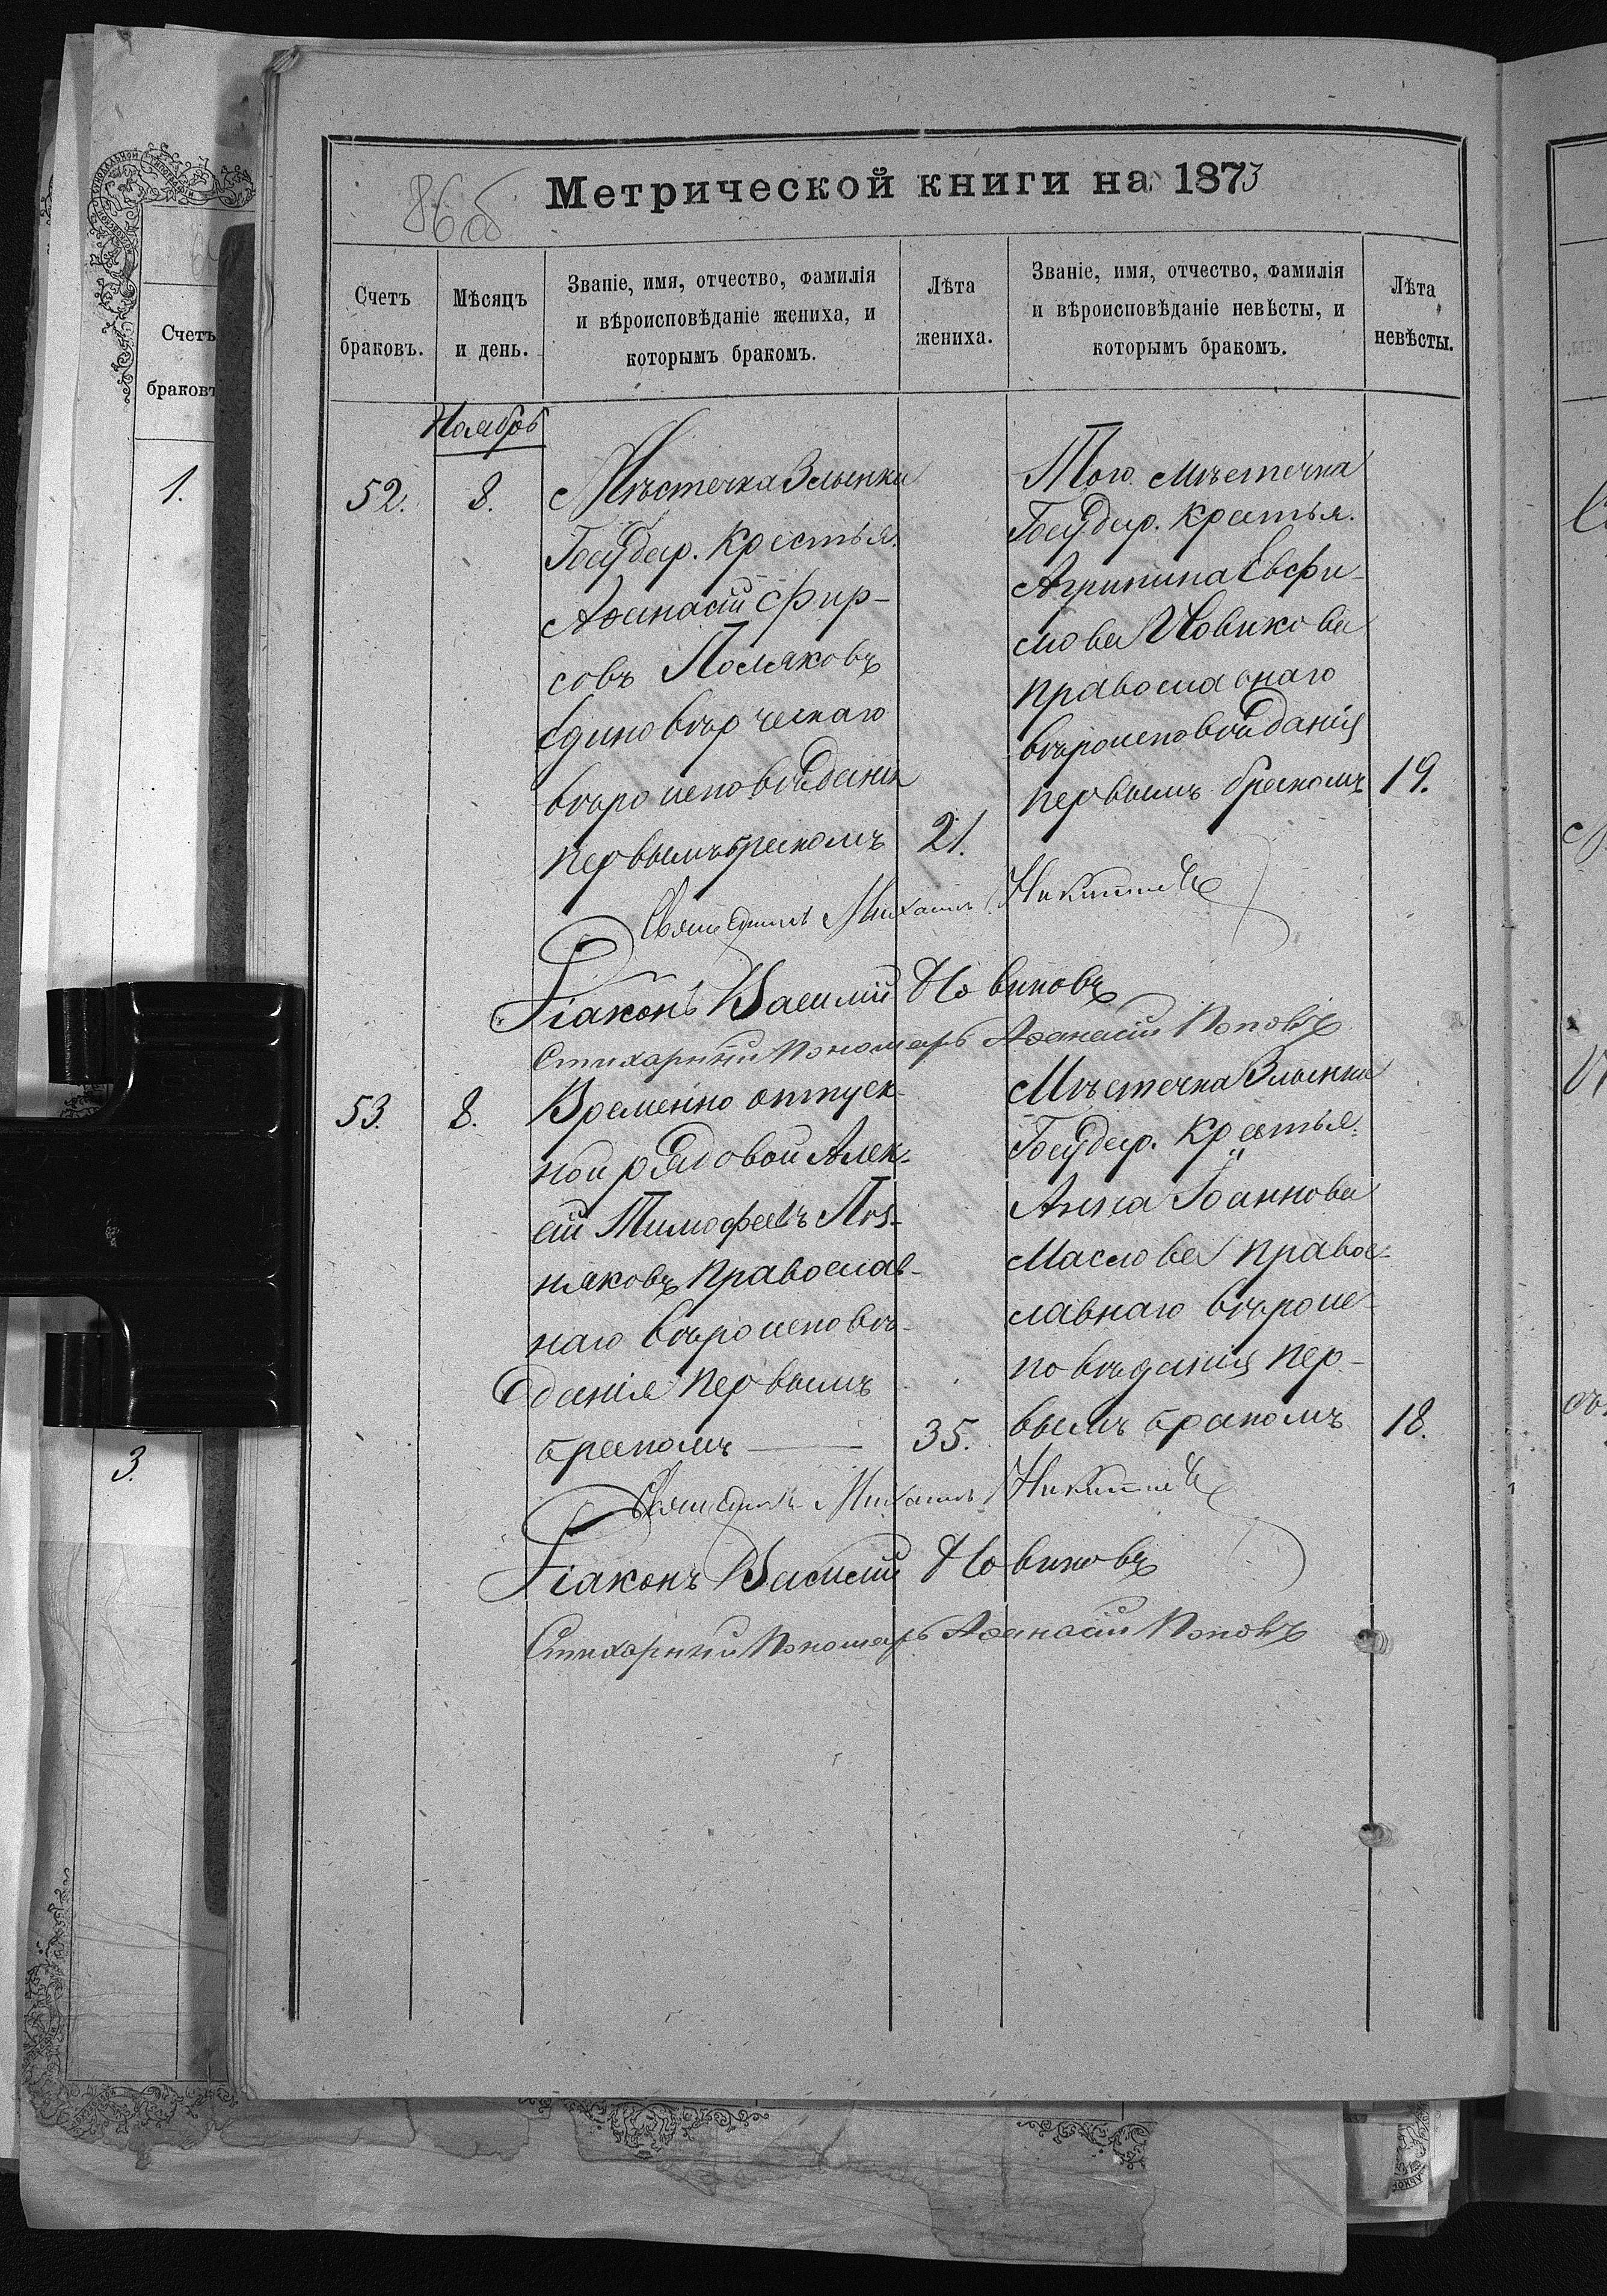 86 об
Метрической книги на 1873
Счетъ
браковъ.
Мѣсяцъ
и день.
Званіе, имя, отчество, фамилія
и вѣроисповѣданіе жениха, и
которымъ бракомъ.
Лѣта
жениха.
Званіе, имя, отчество, фамилія
и вѣроисповѣданіе невѣсты, и
которымъ бракомъ.
Лѣта
невѣсты.
Ноябрь
52.
8.
Мѣстечка Злынки
Государ. Крестья.
Аѳанасій Фир-
совъ Поляковъ
Единовѣрческаго
вѣроисповѣданія
первымъ бракомъ
21.
Того мѣстечка
Государ. Крестья.
Агрипина Евфи-
мова Новикова
православнаго
вѣроисповѣданія
первымъ бракомъ
19.
Священникъ Михаилъ
Діаконъ Василій Новиковъ
Стихарный Пономарь Аѳанасій Поповъ
53.
8.
Временно отпуск-
ной рядовой Алек-
ѣй Тимофеевъ Поз-
няковъ Православ-
наго вѣроисповѣ-
данія первымъ
бракомъ
35.
Мѣстечка Злынки
Государ. Крестья.
Анна Іоаннова
Маслова Правос-
лавнаго вѣроис-
повѣданія пер-
вымъ бракомъ
18.
Священникъ Михаилъ
Діаконъ Василій Новиковъ
Стихарный Пономарь Аѳанасій Поповъ
Счетъ
браковъ
1.
3.